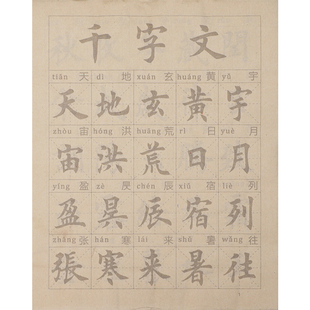 千字文
tiān 天 dì 地 xuán 玄 huáng 黄 yǔ 宇
天地玄黃宇
zhòu 宙 hóng 洪 huāng 荒 rì 日 yuè 月
宙洪荒日月
yíng 盈 zè 昃 chén 辰 xiù 宿 liè 列
盈昃辰宿列
zhāng 张 hán 寒 lái 来 shǔ 暑 wǎng 往
張寒来暑往